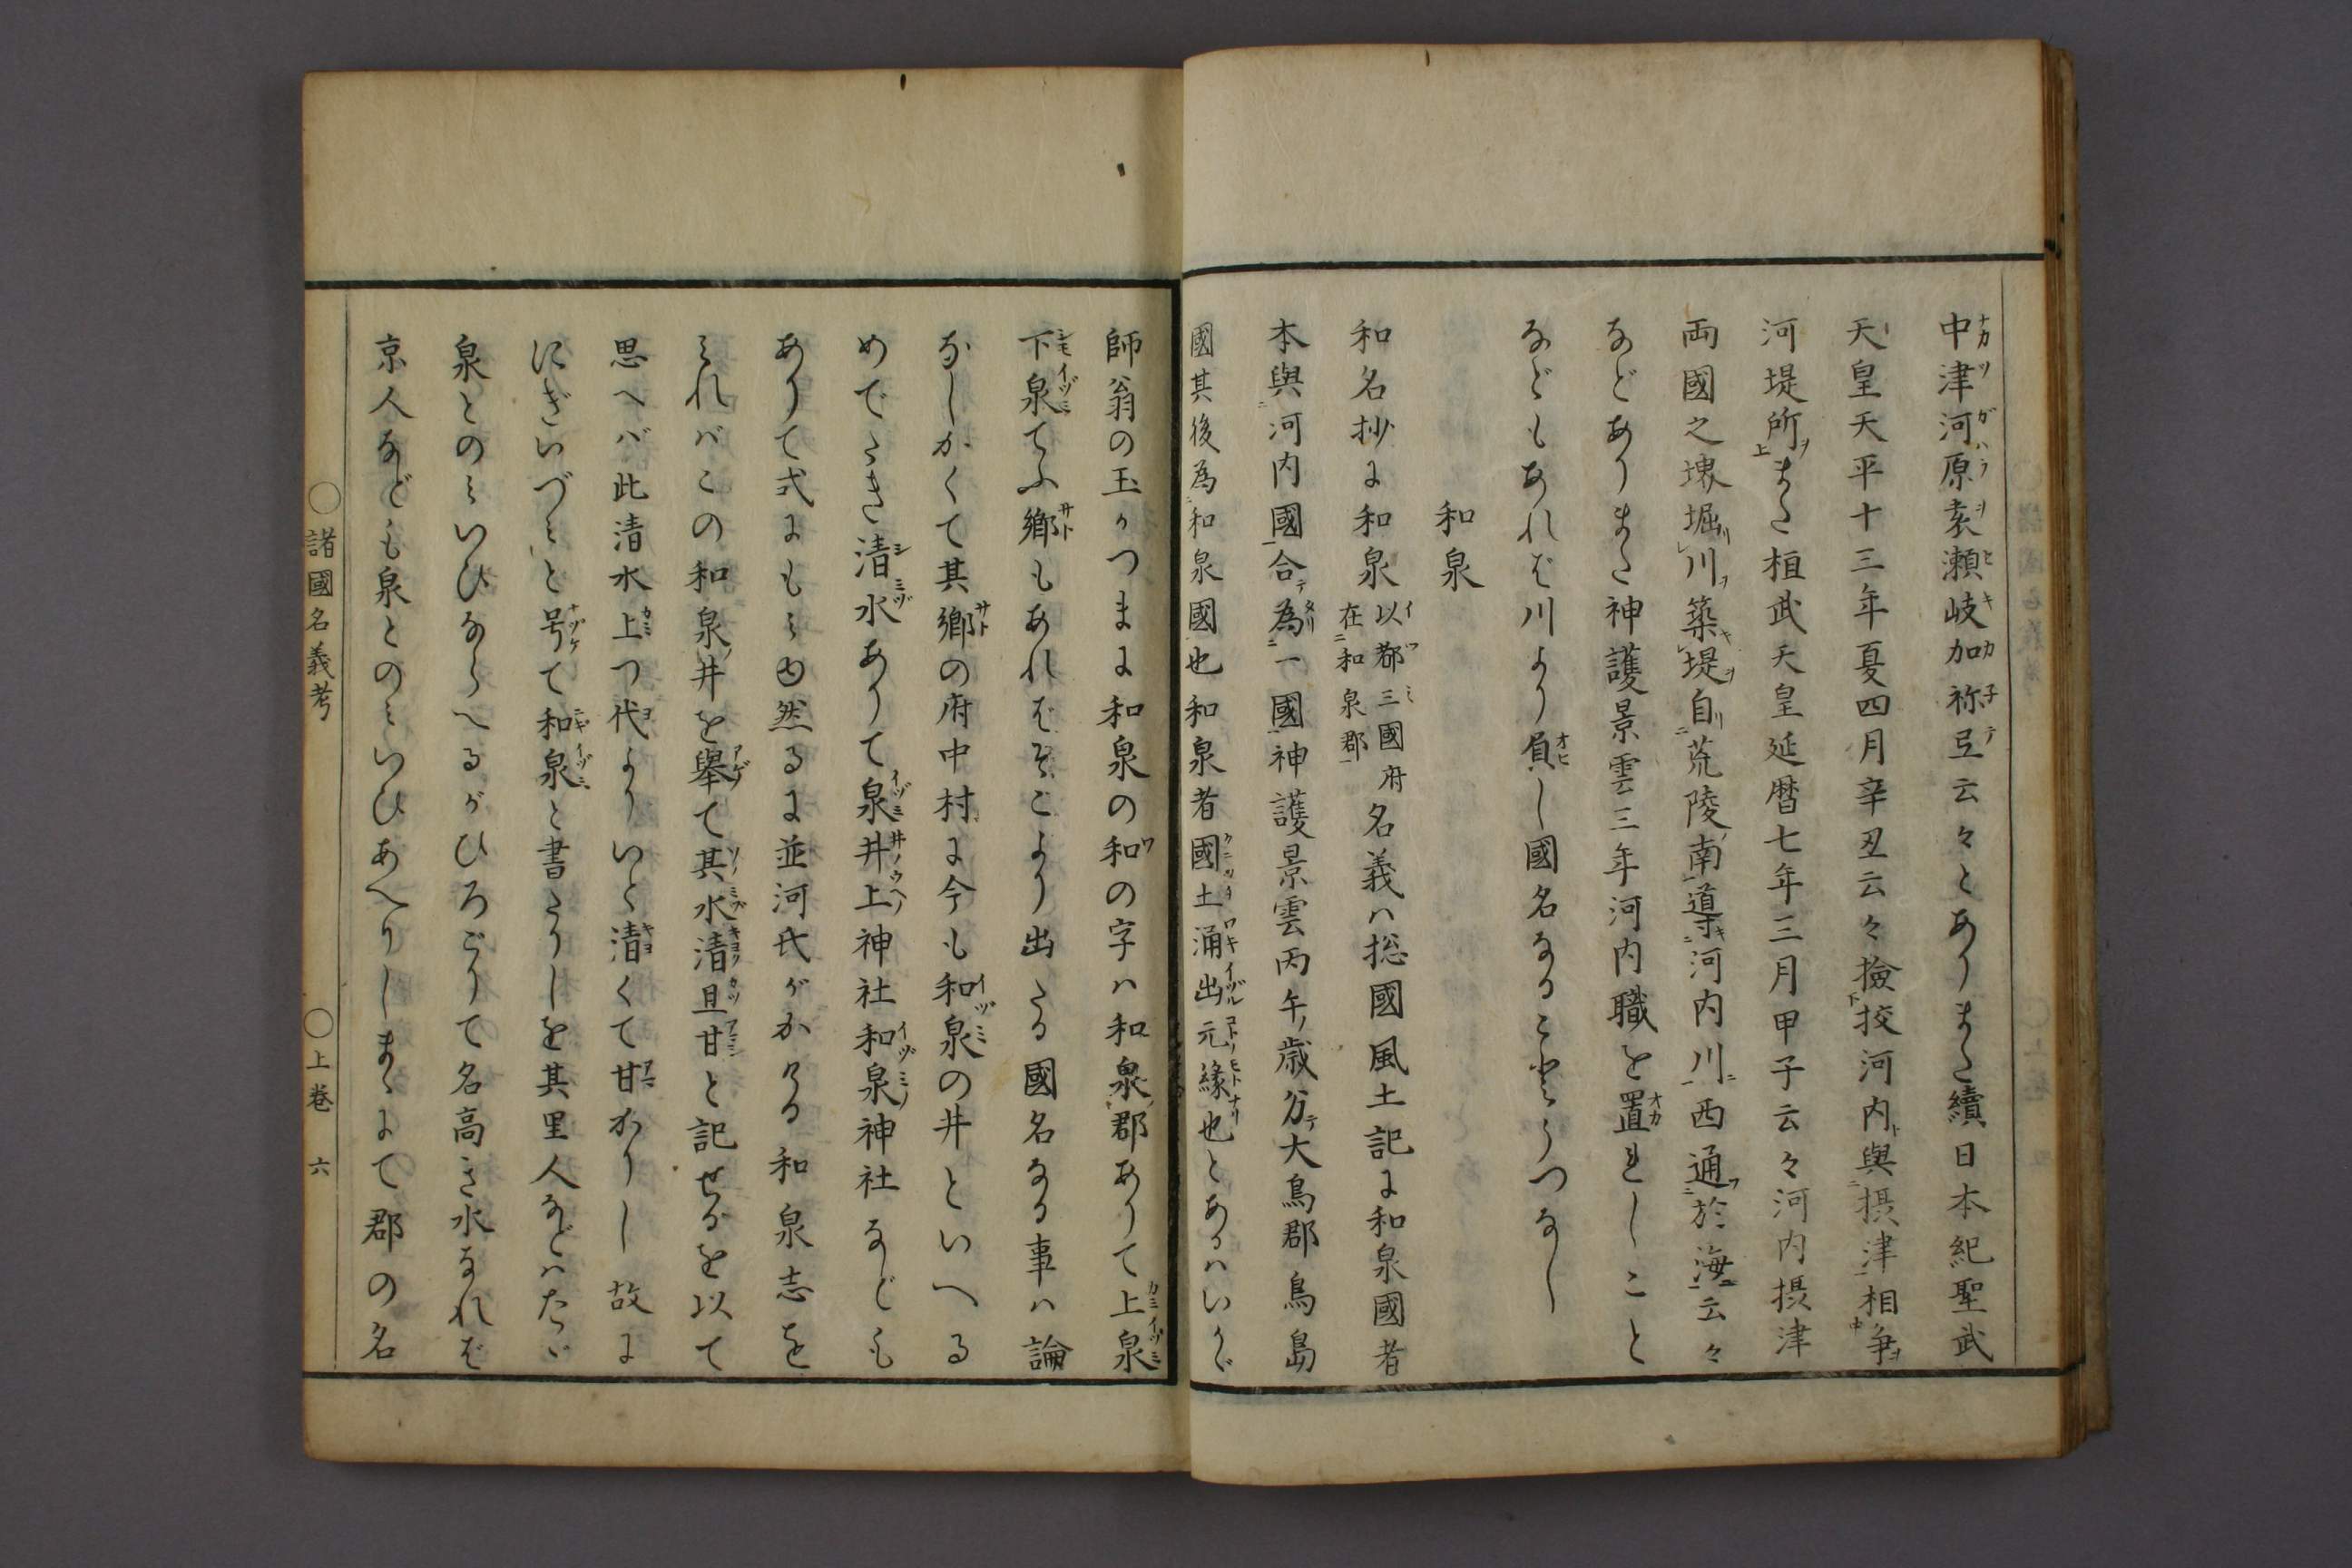 中津河原袁瀬岐加祢弖云々とありまた續日本紀聖武
天皇天平十三年夏四月辛丑云々撿挍河内與摂津相争
河堤所また桓武天皇延暦七年三月甲子云々河内摂津
両國之堺堀川築堤自荒陵南導河内川西通於海云々
などありまた神護景雲三年河内職を置れしこと
などもあれば川より負し國名なることうつなし
和泉
和名抄に和泉以都三國府在和泉郡名義ハ捴國風土記に和泉國者
本與河内國合為一國神護景雲丙午歳分大鳥郡鳥島
國其後為和泉國也和泉者國土涌出元縁也とあるハいかゞ
師翁の玉かつまに和泉の和の字ハ和泉郡ありて上泉
下泉てふ郷もあればそこより出たる國名なる事ハ論
なしかくて其郷の府中村に今も和泉の井といへる
めでたき清水ありて泉井上神社和泉神社なども
ありて式にもみゆ然るに並河氏がかける和泉志を
みれバこの和泉井を舉て其水清且甘と記せるを以て
思へバ此清水上つ代よりいと清くて甘かりし故に
にぎいづみと号て和泉と書たりしを其里人などハたゞ
泉とのみいひならへるがひろごりて名高き水なれば
京人なども泉とのみいひあへりしまゝにて郡の名
○諸國名義考　○上巻　六